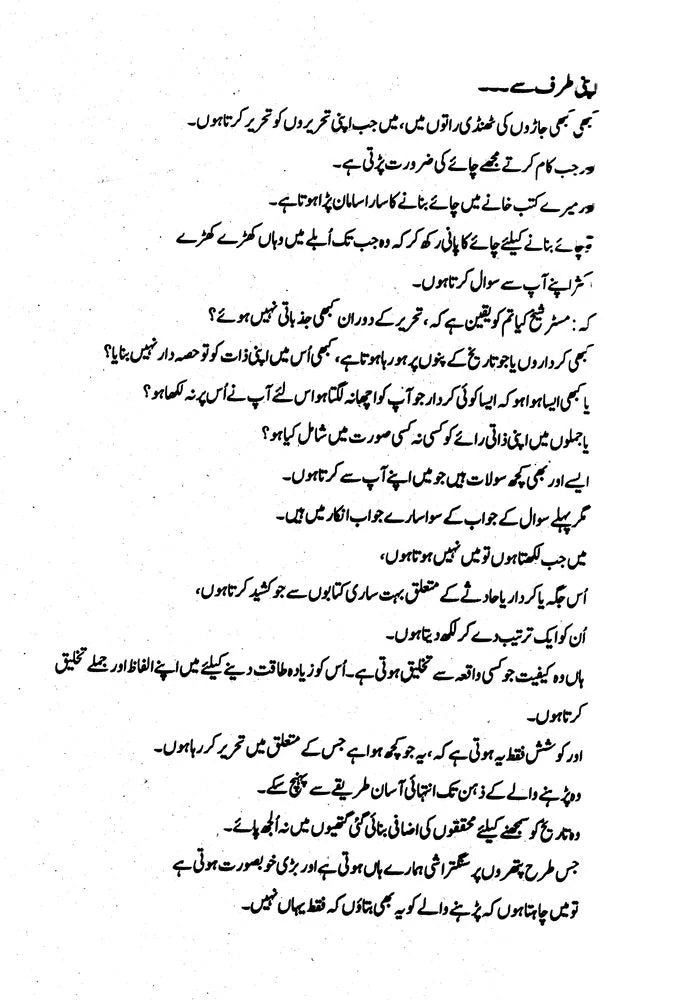 اپنی طرف سے ۔۔۔
کبھی کبھی جاڑوں کی ٹھنڈی راتوں میں، میں جب اپنی تحریروں کو تحریر کرتا ہوں۔
اور جب کام کرتے مجھے چائے کی ضرورت پڑتی ہے۔
اور میرے کتب خانے میں چائے بنانے کا سارا سامان پڑا ہوتا ہے۔
تو چائے بنانے کیلئے چائے کا پانی رکھ کر کہ وہ جب تک اُبلے میں وہاں کھڑے کھڑے
اکثر اپنے آپ سے سوال کرتا ہوں۔
کہ : مسٹر شیخ کیا تم کو یقین ہے کہ، تحریر کے دوران کبھی جذباتی نہیں ہوئے؟
کبھی کرداروں یا جو تاریخ کے پنوں پر ہو رہا ہوتا ہے، کبھی اُس میں اپنی ذات کو تو حصہ دار نہیں بنایا؟
یا کبھی ایسا ہوا ہو کہ ایسا کوئی کردار جو آپ کو اچھا نہ لگتا ہو اس لئے آپ نے اُس پر نہ لکھا ہو؟
یا جملوں میں اپنی ذاتی رائے کو کسی نہ کسی صورت میں شامل کیا ہو؟
ایسے اور بھی کچھ سولات ہیں جو میں اپنے آپ سے کرتا ہوں۔
مگر پہلے سوال کے جواب کے سوا سارے جواب انکار میں ہیں۔
میں جب لکھتا ہوں تو میں نہیں ہوتا ہوں،
اُس جگہ یا کردار یا حادثے کے متعلق بہت ساری کتابوں سے جو کشید کرتا ہوں،
اُن کو ایک ترتیب دے کر لکھ دیتا ہوں۔
ہاں وہ کیفیت جو کسی واقعہ سے تخلیق ہوتی ہے۔ اُس کو زیادہ طاقت دینے کیلئے میں اپنے الفاظ اور جملے تخلیق
کرتا ہوں۔
اور کوشش فقط یہ ہوتی ہے کہ، یہ جو کچھ ہوا ہے جس کے متعلق میں تحریر کر رہا ہوں۔
وہ پڑہنے والے کے ذہن تک انتہائی آسان طریقے سے پہنچ سکے۔
وہ تاریخ کو سمجھنے کیلئے محققوں کی اضافی بنائی گئی گتھیوں میں نہ اُلجھ پائے۔
جس طرح پتھروں پر سنگتراشی ہمارے ہاں ہوتی ہے اور بڑی خوبصورت ہوتی ہے
تو میں چاہتا ہوں کہ پڑہنے والے کو یہ بھی بتاؤں کہ فقط یہاں نہیں۔